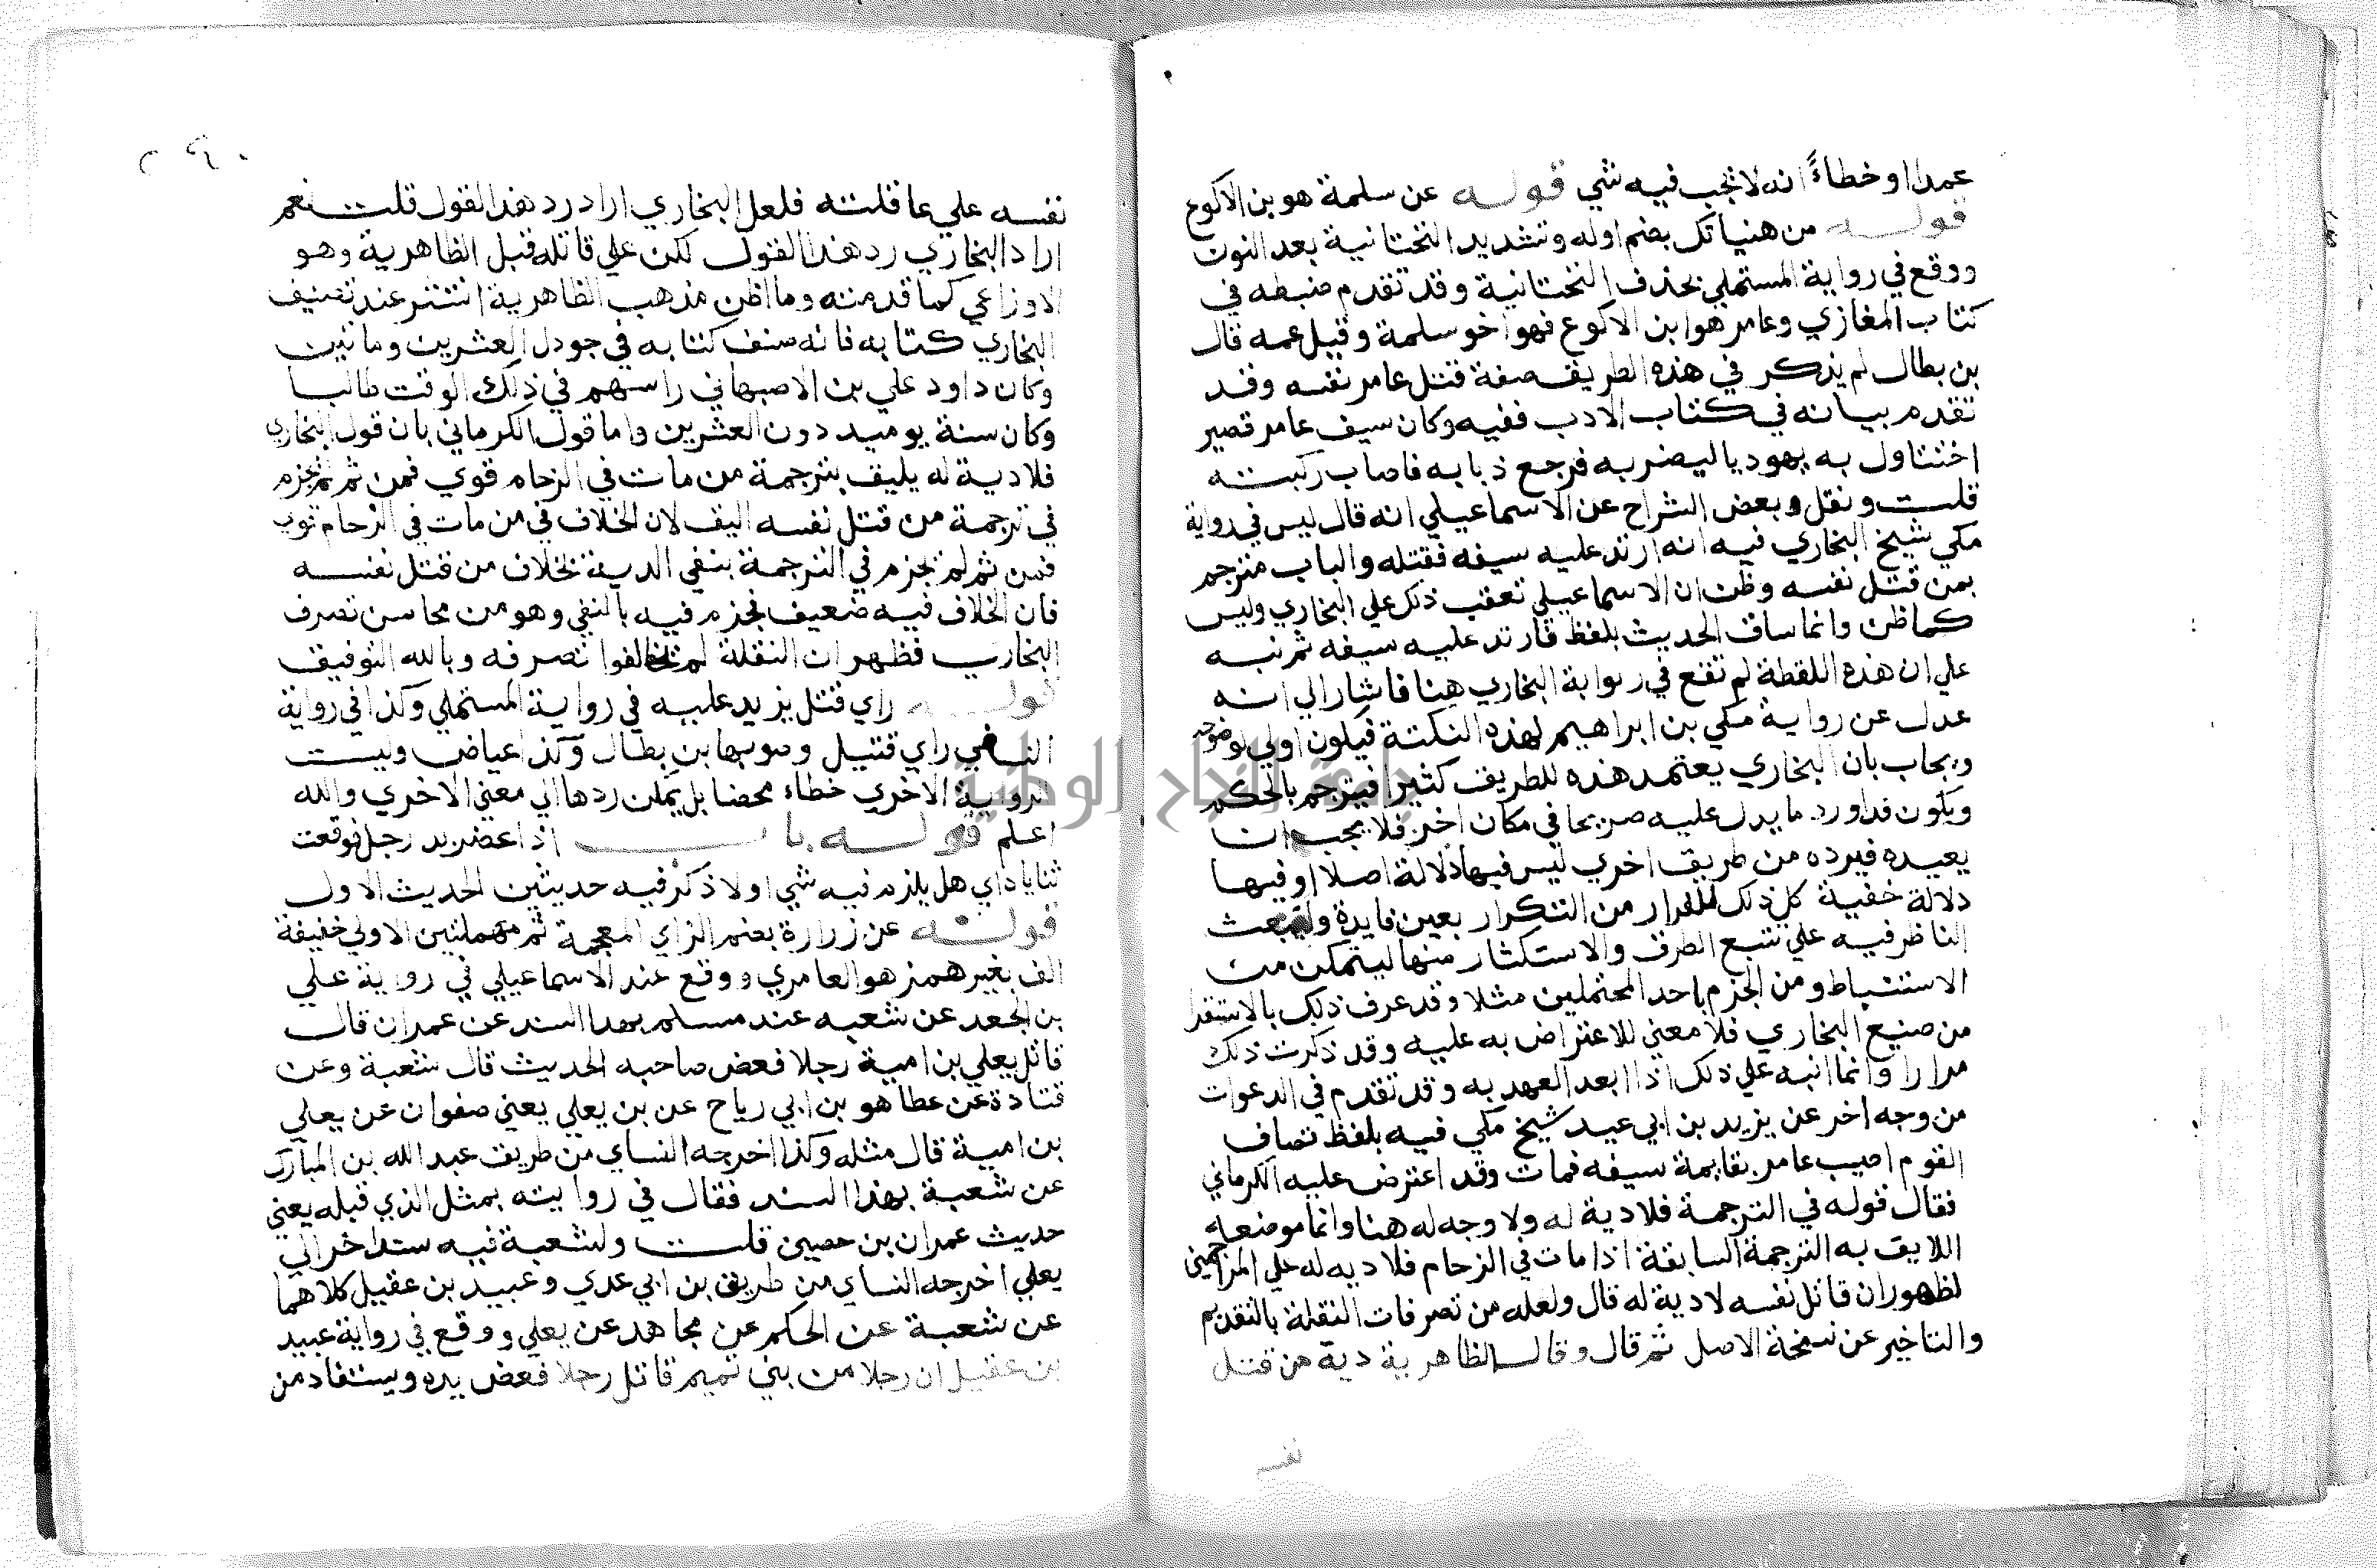 عمدا او خطاءً انه لا تجب فيه شي قوله عن سلمة هو بن الاكوع
قوله من هنياتك بضم اوله وتشديد التحتانية بعد النون
ووقع في رواية المستملي بحذف التحتانية وقد تقدم ضبطه في
كتاب المغازي وعامر هو ابن الاكوع فهو اخو سلمة وقيل عمه قال
بن بطال لم يذكر في هذه الطريق صفة قتل عامر نفسه وقد
تقدم بيانه في كتاب الادب ففيه وكان سيف عامر قصير
اختتاول به يهوديا ليضربه فرجع ذبابه فاصاب ركبته
قلت ونقل وبعض الشراح عن الاسماعيلي انه قال ليس في رواية
مكي شيخ البخاري فيه انه ارتد عليه سيفه فقتله والباب مترجم
بمن قتل نفسه وظن ان الاسماعيلي تعقب ذلك علي البخاري وليس
كما ظن وانما ساق الحديث بلفظ فارتد عليه سيفه ثم نبه
علي ان هذه اللقطة لم تقع في رواية البخاري هنا فاشار الي انه
عدل عن رواية مكي بن ابراهيم لهذه النكتة فيكون اولي لوضوحه
ويجاب بان البخاري يعتمد هذه للطريق كثيرا فيترجم بالحكم
ويكون قد اورد ما يدل عليه صريحا في مكان اخر فلا يجب ان
يعيده فيرده من طريق اخري ليس فيها دلالة اصلا او فيها
دلالة خفية كل ذلك للفرار من التكرار بعين فايدة وليبعث
الناظر فيه علي تتبع الطرق والاستكثار منها ليتمكن من
الاستنباط ومن الجزم باحد المحتملين مثلا وقد عرف ذلك بالاستقرا
من صنيع البخاري فلا معني للاعتراض به عليه وقد ذكرت ذلك
مرارا وانما انبه علي ذلك اذا ابعد العهد به وقد تقدم في الدعوات
من وجه اخر عن يزيد بن ابي عيد شيخ مكي فيه بلفظ تصاف
القوم اصيب عامر بقايمة سيفه فمات وقد اعترض عليه الكرماني
فقال قوله في الترجمة فلا دية له ولا وجه له هنا وانما موضعه
اللايق به الترجمة السابقة اذا مات في الزحام فلا ديه له علي المزاحمين
لظهور ان قاتل نفسه لا دية له قال ولعله من تصرفات النقلة بالتقديم
والتاخير عن نسخة الاصل ثم قال وقال الظاهرية دية من قتل
نفسه
نفسه علي عاقلته فلعل البخاري اراد رد هذا القول قلت نعم
اراد البخاري رد هذا القول لكن علي قاتله قبل الظاهرية وهو
الاوزاعي كما قدمته وما اظن مذهب الظاهرية انتشر عند تصنيف
البخاري كتابه فانه سنف كتابه في حودل العشرين ومائتين
وكان داود علي بن الاصبهاني راسهم في ذلك الوقت طالبا
وكان سنة يوميد دون العشرين واما قول الكرماني بان قول البخاري
فلا دية له يليق بترجمة من مات في الزحام قوي فمن ثم لم يجزم
في ترجمة من قتل نفسه اليق لان الخلاف في من مات في الزحام قوي
فمن ثم لم يجزم في الترجمة بنفي الدية بخلاف من قتل نفسه
فان الخلاف فيه ضعيف فجزم فيه بالنفي وهو من محاسن تصرف
البخاري فظهر ان النقلة لم يخالفوا تصرفه وبالله التوفيق
قوله راي قتل يزيد عليه في رواية المستملي وكذا في رواية
النسفي راي قتيل وصوبها بن بطال وكذا عياض وليست
الرواية الاخري خطاء محضا بل يمكن ردها الي معني الاخري والله
اعلم قوله باب اذا عض يد رجل فوقعت
ثناياه اي هل يلزم فيه شي او لا ذكر فيه حديثين الحديث الاول
قوله عن زرارة بضم الزاي المعجمة ثم مهملتين الاولي خفيفة
الف بغير همز هو العامري ووقع عند الاسماعيلي في رواية علي
بن الجعد عن شعبه عند مسلم بهذا السند عن عمران قال
قاتل يعلي بن امية رجلا فعض صاحبه الحديث قال شعبة وعن
قتادة عن عطا هو بن ابي رياح عن بن يعلي يعني صفوان عن يعلي
بن امية قال مثله وكذا اخرجه النساي من طريق عبد الله بن المبارك
عن شعبة بهذا السند فقال في روايته بمثل الذي قبله يعني
حديث عمران بن حصين قلت ولشعبة فيه سند اخر الي
يعلي اخرجه النساي من طريق بن ابي عدي وعبيد بن عقيل كلاهما
عن شعبة عن الحكم عن مجاهد عن يعلي ووقع في رواية عبيد
بن عقيل ان رجلا من بني تميم قاتل رجلا فعض يده ويستفاد من
جامعة النجاح الوطنية